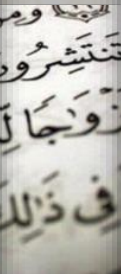 وَمِنْ
تَنتَشِرُونَ
أَزْوَٰجًا لِّ
فِى ذَٰلِكَ